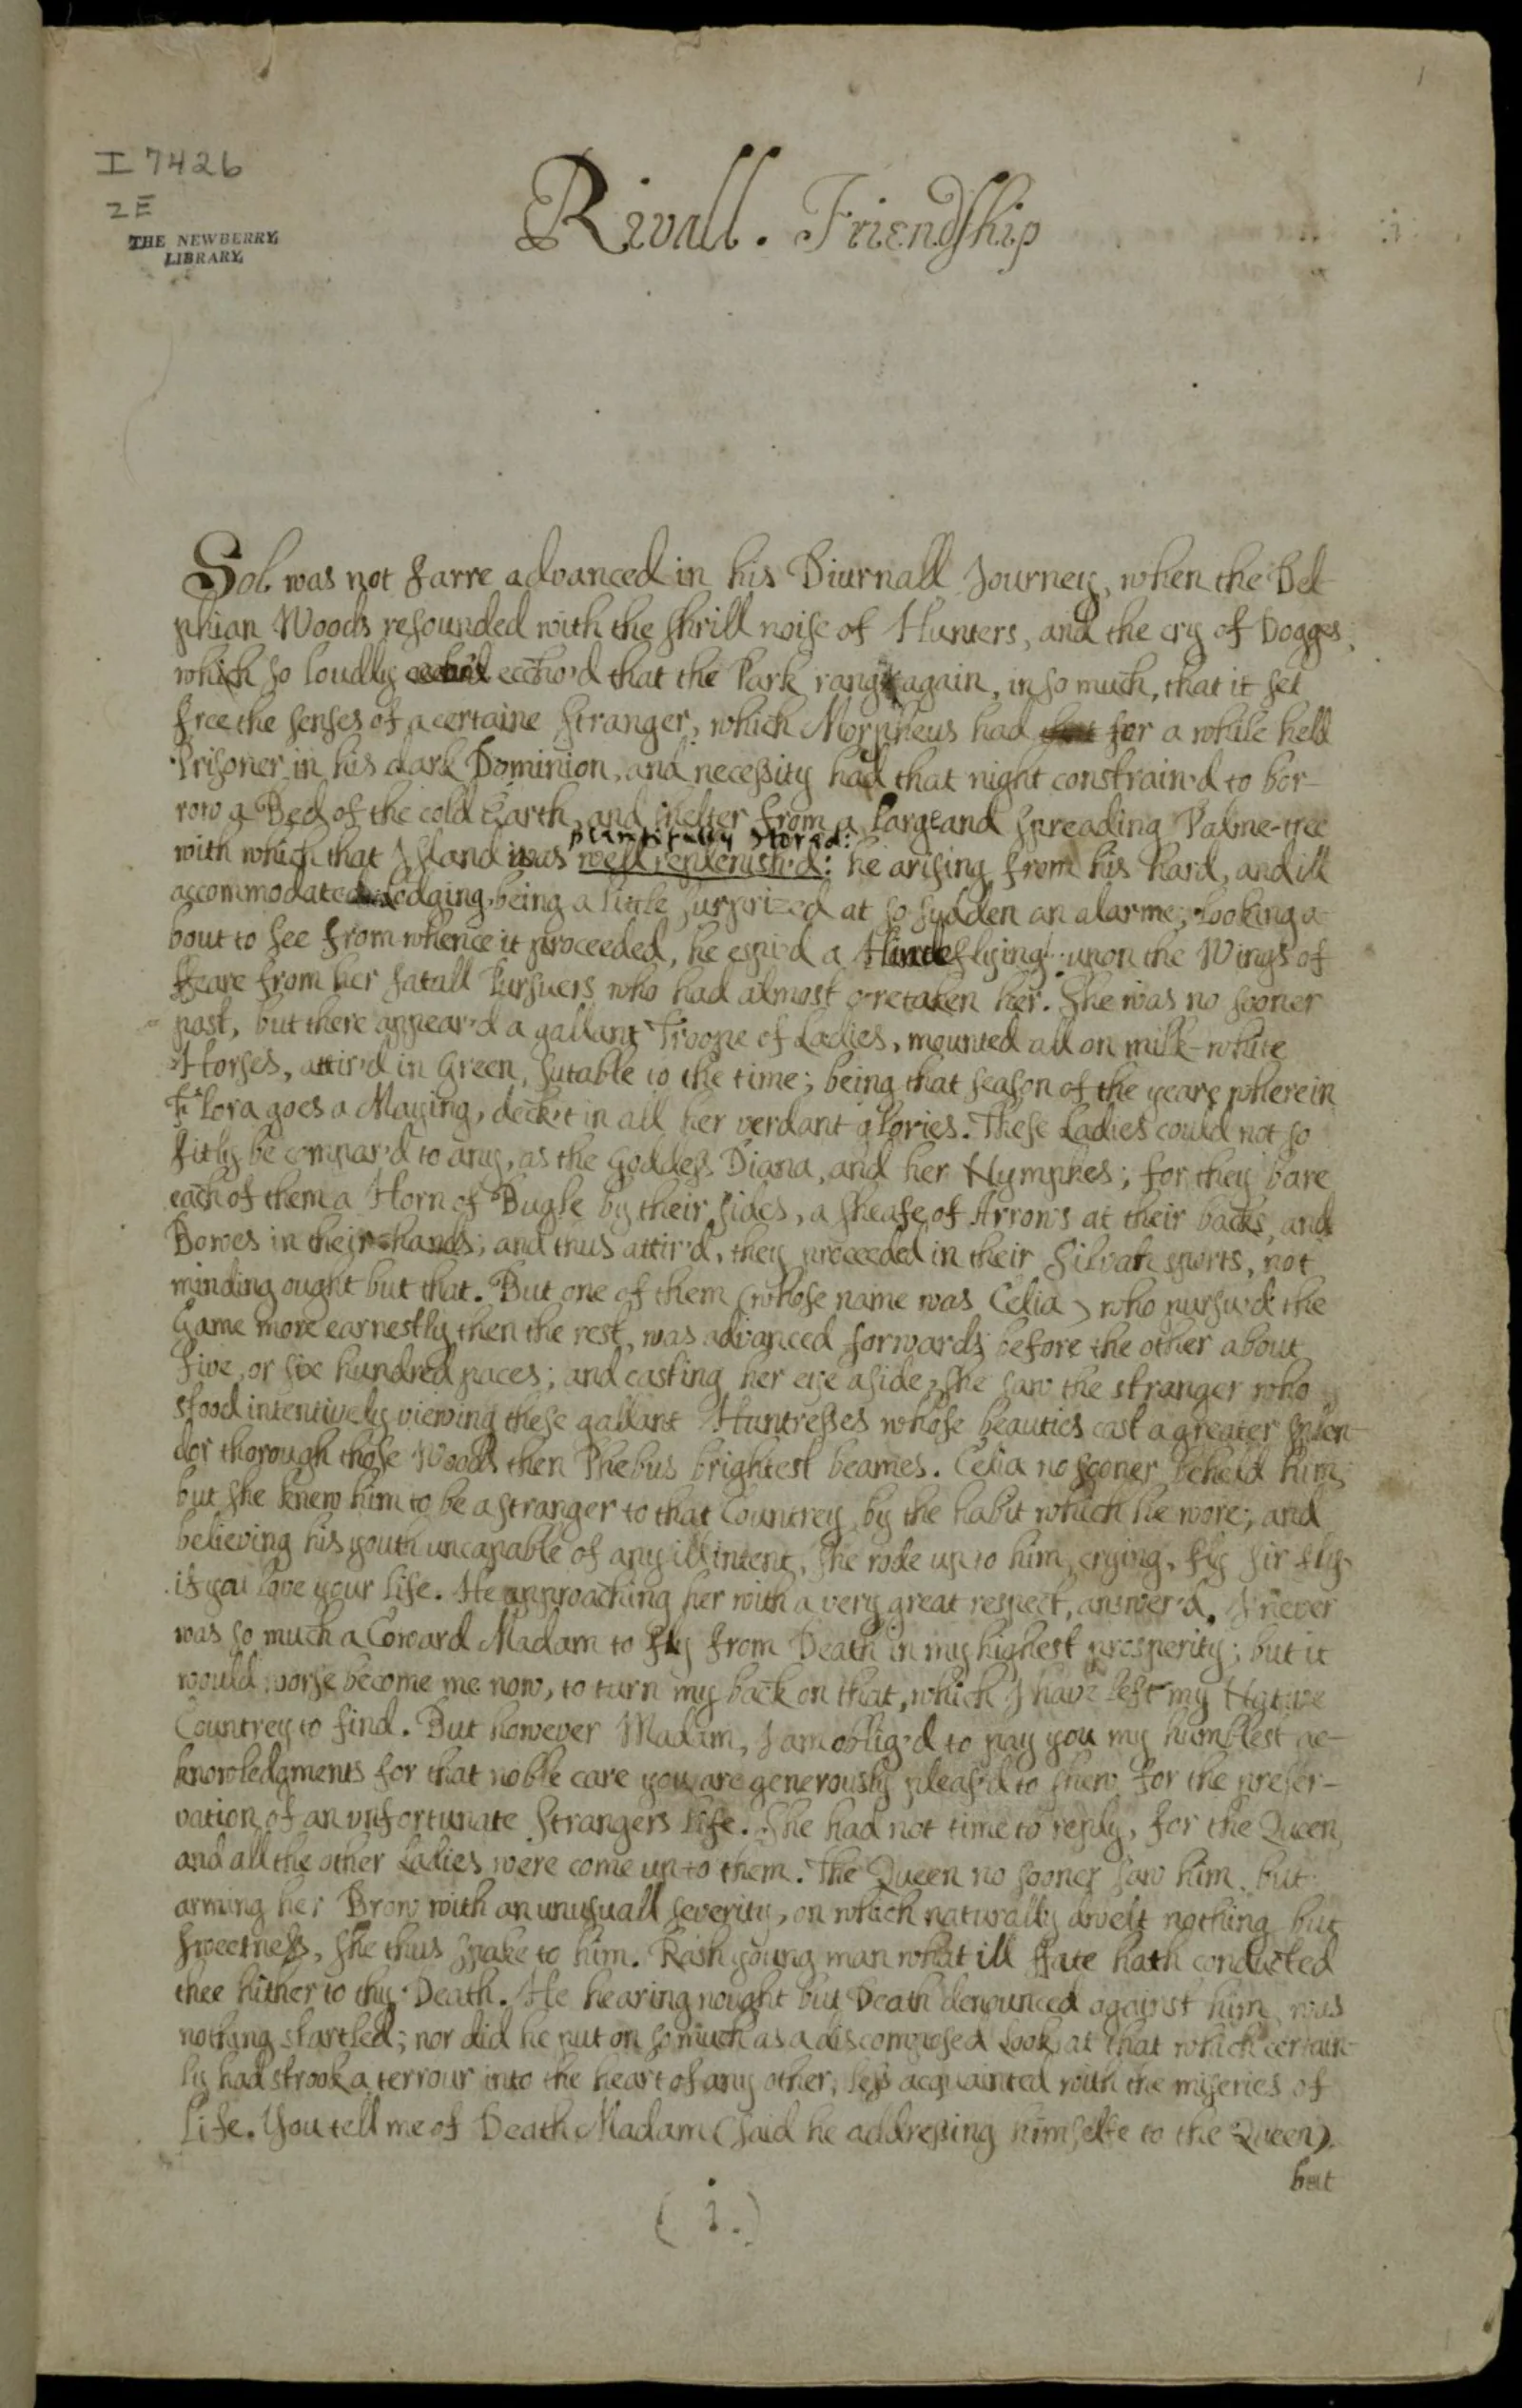 1
I 7426
2E
THE NEWBERRY
LIBRARY
Rivall. Friendship
Sol was not farre advanced in his Diurnall Journey, when the Del
phian Woods resounded with the shrill noise of Hunters, and the cry of Dogges,
which so loudly eccho'd that the Park rang again, in so much, that it set
free the senses of a certaine Stranger, which Morpheus had for a while held
Prisoner in his dark Dominion, and necessity had that night constrain'd to bor-
row a Bed of the cold Earth, and shelter from a large and spreading Palme-tree
plentifully stored:
with which that Island was well replenish'd: he arising from his hard, and ill
accommodated lodging, being a little surprized at so sudden an alarme, looking a
bout to see from whence it proceeded, he espi'd a Hinde flying upon the Wings of
feare from her fatall Pursuers who had almost o'retaken her. She was no sooner
past, but there appear'd a gallant Troope of Ladies, mounted all on milk-white
Horses, attir'd in Green, sutable to the time; being that season of the yeare wherein
Flora goes a Maying, deck't in all her verdant glories. These Ladies could not so
fitly be compar'd to any, as the Goddess Diana, and her Nymphes; for they bare
each of them a Horn of Bugle by their sides, a sheafe of Arrows at their backs, and
Bowes in their hands; and thus attir'd, they proceeded in their Silvan sports, not
minding ought but that. But one of them (whose name was Celia) who pursu'd the
Game more earnestly then the rest, was advanced forwards before the other about
five, or six hundred paces; and casting her eye aside, she saw the stranger who
stood intentively viewing these gallant Huntresses whose beauties cast a greater splen
dor thorough those Woods then Phebus brightest beames. Celia no sooner beheld him,
but she knew him to be a stranger to that Countrey, by the habit which he wore; and
believing his youth uncapable of any ill intent, she rode up to him, crying, fly Sir fly,
if you love your life. He approaching her with a very great respect, answer'd. I never
was so much a Coward Madam to fly from Death in my highest prosperity; but it
would worse become me now, to turn my back on that, which I have left my Native
Countrey to find. But however Madam, I am oblig'd to pay you my humblest ac-
knowledgments for that noble care you are generously pleas'd to shew for the preser-
vation of an vnfortunate Strangers life. She had not time to reply, for the Queen,
and all the other Ladies were come up to them. The Queen no sooner saw him, but
arming her Brow with an unusuall severity, on which naturally dwelt nothing but
sweetness, she thus spake to him. Rash young man what ill ffate hath conducted
thee hither to thy Death. He hearing nought but Death denounced against him, was
nothing startled; nor did he put on so much as a discomposed look at that which certain-
ly had strook a terrour into the heart of any other, less acquainted with the miseries of
life. You tell me of Death Madam (said he addressing himselfe to the Queen)
but
( 1. )